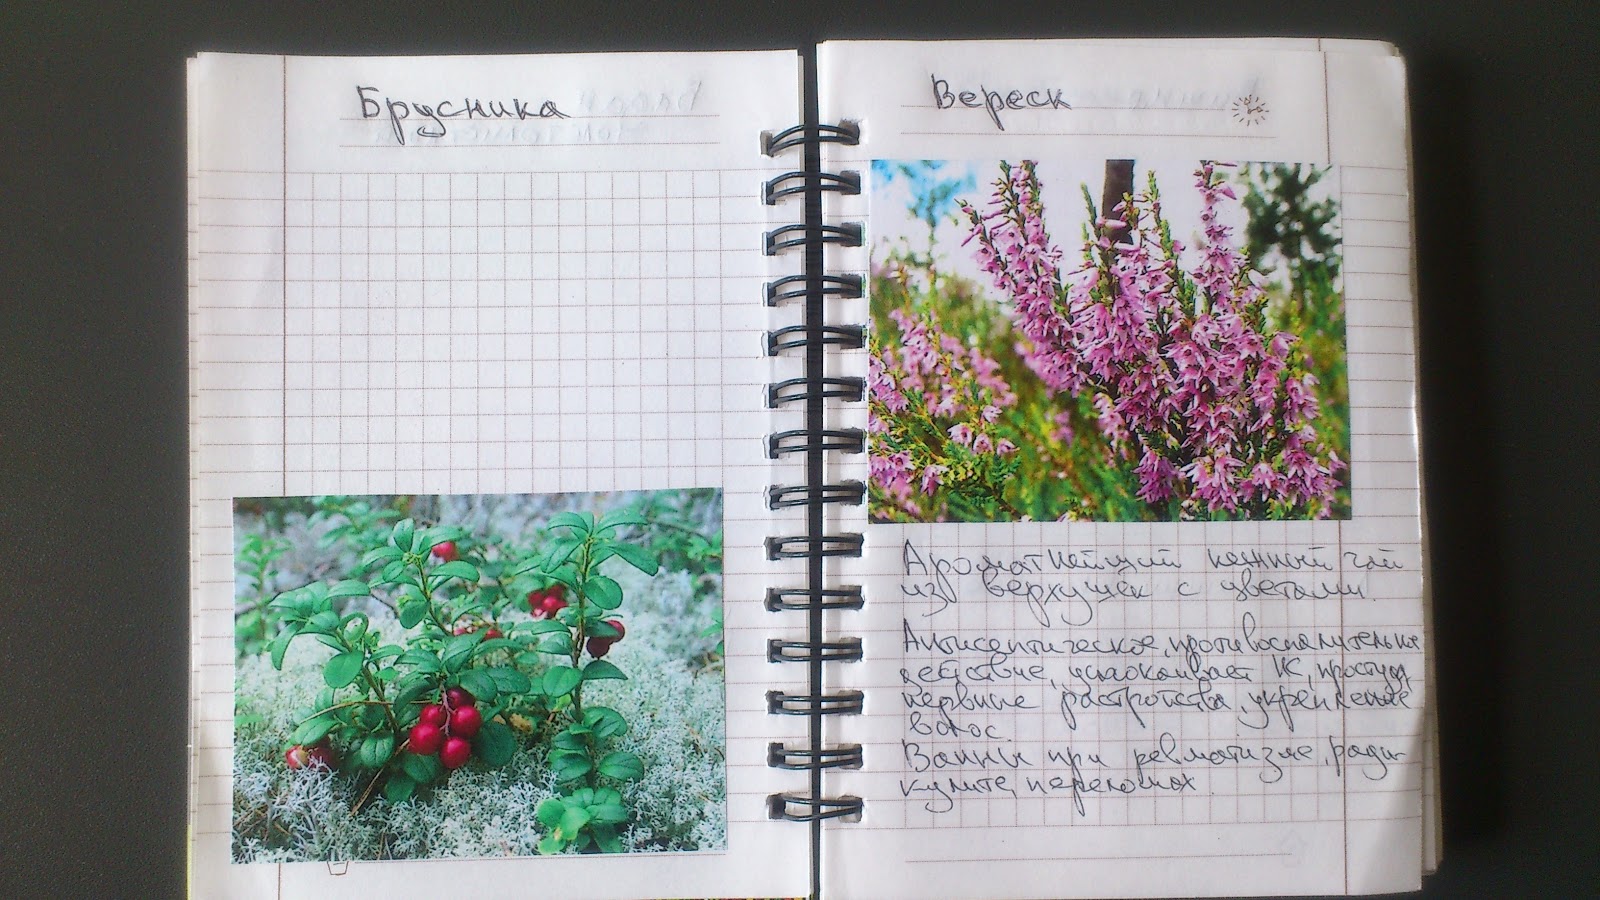 Брусника
Вереск
Ароматнейший нежный чай
из верхушек с цветами.
Антисептическое, противоспалительное
действие, успокаивает К, простуд,
нервные растройства, укрепление
волос.
Ванны при ревматизме, ради-
кулите, переломах